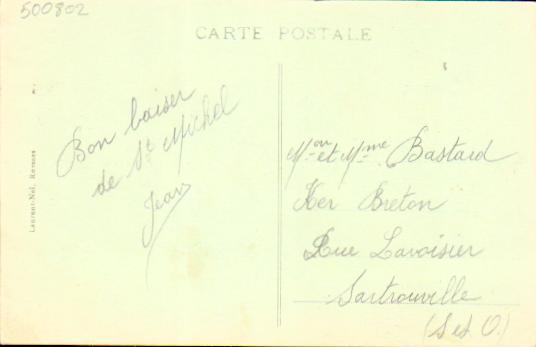 500802
CARTE POSTALE
Bon baiser
de St Michel
Jean
Mon et Mme Bastard
Ker Breton
Rue Lavoisier
Sartrouville
(S et O.)
Laurent-Nel, Rennes